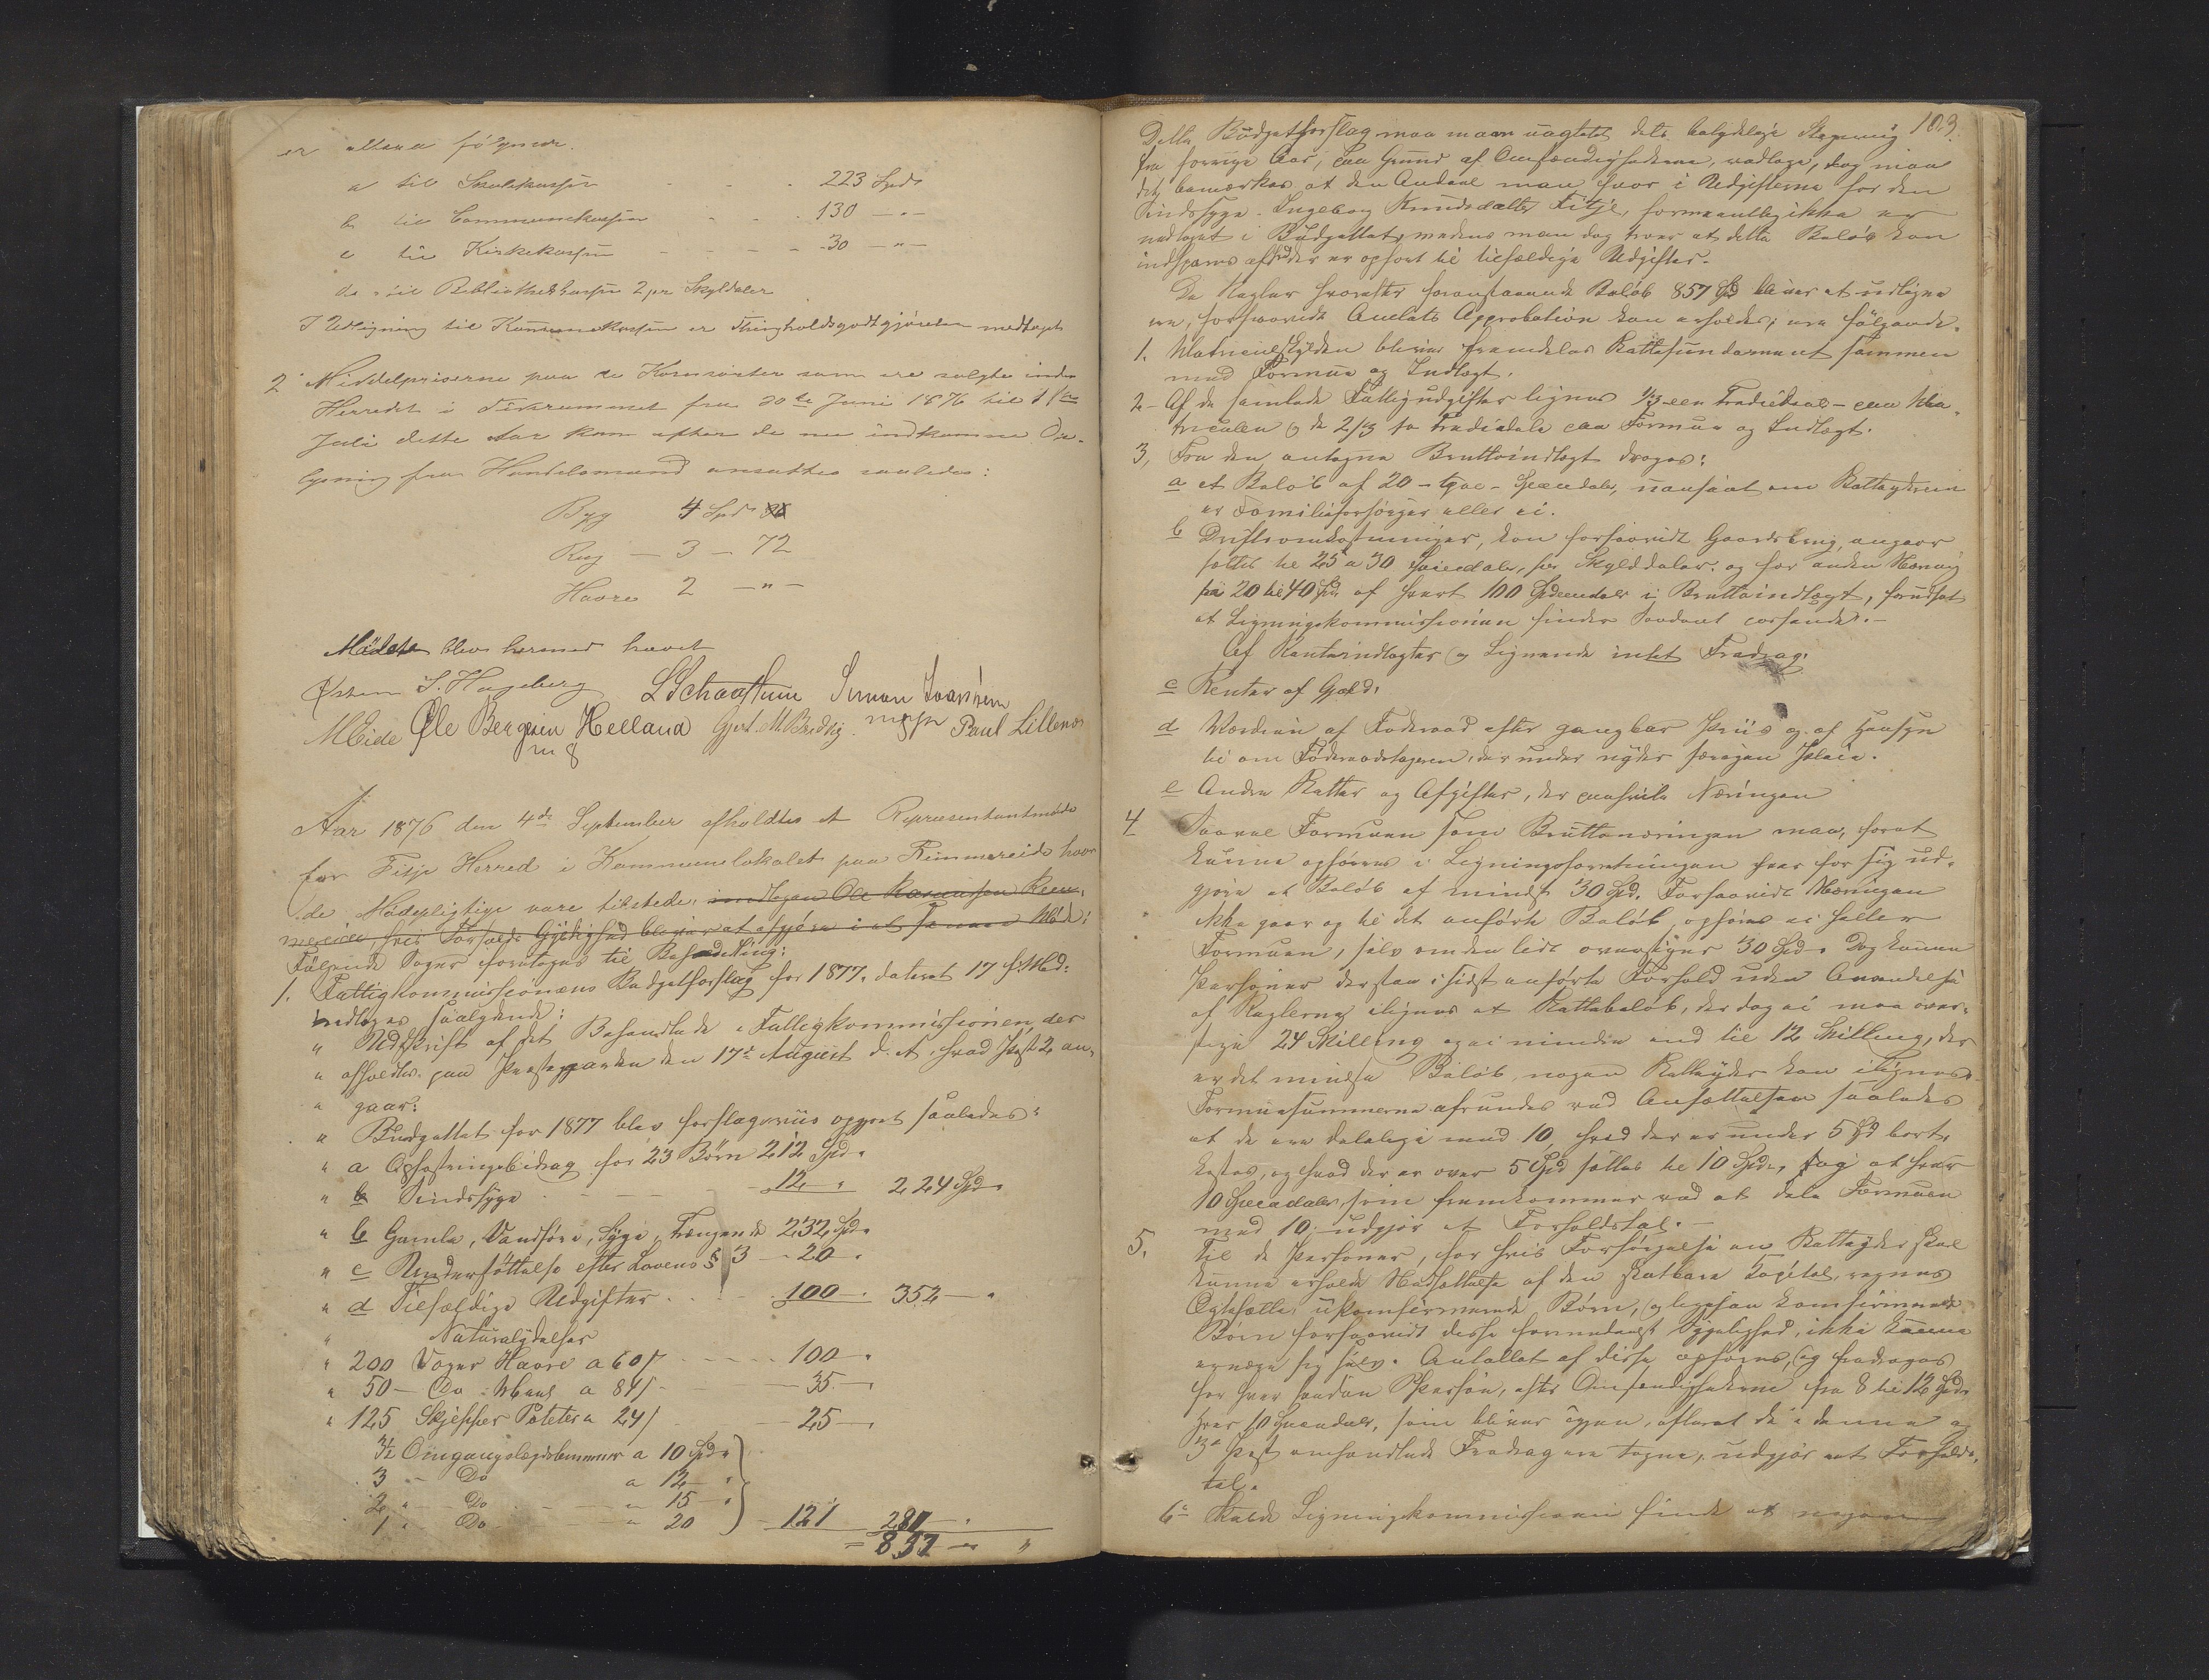 er altsaa følgende.
a til Skolekassen - - - 223 Spd
b til Communekassen - - - 130 — " —
c til Kirkekassen - - - - 30 — " —
til Bibliothekkassen 2 pr Skyldaler
I Udligning til Kommunekassen er Thingholdsgodtgjørelsen medtaget
2 Middelpriserne paa de Kornsorter som ere solgte inden
Herredet i Tidsrummet fra 20de Juni 1876 til
Juli dette Aar kom efter de nu indkomne Op-
lysning fra Handelsmænd ansættes saaledes:
Byg 4 Spd
Rug — 3 — 72
Havre 2 — " —
Mødet blev hermed hævet
S. Hageberg L Schaathun Simon Ivarsen
M Eide Ole Bergesen Helland Gjert. M. Bredvig. Paul Lillenes
Aar 1876 den 4de September afholdtes et Repræsentantmøde
for Fitje Herred i Kommunelokalet paa Rimmereide hvor
de Mødepligtige vare tilstede. undtagen Ole Rasmussen Rem-
mereide, hvis Forfalds Gyldighed bliver at afgjøre i et senere Møde:
Følgende Sager foretoges til Behandling:
1. Fattigkommissionens Budgetforslag for 1877, dateret 17 f. Md:
indtages saalydende:
" Udskrift af det Behandlede i Fattigkommissionen, der
" afholdtes paa Præstegaarden den 17de August d. A. hvad Post 2 an-
" gaar:
" Budgettet for 1877 blev forslagsviis opgjort saaledes:
" a Opfostringsbidrag for 23 Børn 212 Spd.
" b Sindssyge - - - 12 " 224 Spd.
" b Gamle, Vanføre, Syge, Trængende 232 Spd.
" c Understøttelse efter Lovens § 3 — 20 "
" d Tilfældige Udgifter - - - 100 — 352 — "
" Naturalydelser
" 200 Voger Havre a 60 s - - - 100 — "
" 50 — Do Meel a 84 s - - - 35 — "
" 125 Skjepper Poteter a 24 s - - 25 — "
Omgangslægdslemmer a 10 Spd.
3 - Do a 12 — "
2 " - Do - " 15 — "
1 " - Do - " 20 — 121 281 — "
= 857 — " "
103.
Dette Budgetforslag maa man uagtet dets betydelige Stegning
fra forrige Aar, paa Grund af Omstændighederne, vedtage, dog maa
det bemærkes at den Andeel man har i Udgifterne for den
Sindssyge Ingeborg Knudsdatter Fitje, formeentlig ikke er
medtaget i Budgettet, medens man dog troer at dette Beløb kan
indspares af hvad der er opført til tilfældige Udgifter.
De Regler hvorefter foranstaaende Beløb 857 Spd bliver at udligne
ere, forsaavidt Amtets Approbation kan erholdes, ere følgende.
1. Matriculskylden bliver fremdeles Skattefundament sammen
med Formue og Indtægt.
2 - Af de samlede Fattigudgifter lignes 1/3 - een Trediedeel - paa Ma-
triculen og de 2/3 to Trediedele paa Formue og Indtægt.
3, Fra den antagne Bruttoindtægt drages:
a et Beløb af 20 - tyve - Speciedaler, uanseet om Skatteyderen
er Familieforsørger eller ei.
b Driftsomkostninger, kan forsaavidt Gaardsbrug angaar
sættes til 25 a 30 Speciedaler, per Skylddaler. og for anden Næring
fra 20 til 40 Spd. af hvert 100 Speciedaler i Bruttoindtægt, forudsat
at Ligningskommissionen finder Saadant passende. —
Af Renteindtægter og Lignende intet Fradrag.
c Renter af Gjæld.
d Værdien af Foderaad efter gangbar Priis og af Hensyn
til om Føderaadstageren, der under nyder særegen Pleie.
e Andre Skatter og Afgifter, der paahvile Næringen
4 Saavel Formuen som Bruttonæringen maa, forat
kunne opføres i Ligningsforretningen hver for sig ud-
gjøre et Beløb af mindst 30 Spd. Forsaavidt Næringen
ikke gaar op til det anførte Beløb, opføres ei heller
Formuen, selv om den lidt overstiger 30 Spd. Dog kunne
Personer der staa i sidst anførte Forhold uden Anvendelse
af Reglerne ilignes et Skattebeløb, der dog ei maa over-
stige 24 Skilling og ei mindre end til 12 Skilling, der
er det mindste Beløb, nogen Skatteyder kan ilignes.
Formuesummerne afrundes ved Ansættelsen saaledes
at de ere delelige med 10, hvad der er under 5 Spd bort-
kastes, og hvad der er over 5 Spd sættes til 10 Spd., dog at hver
10 Speciedaler som fremkommer ved at dele Formuen
med 10, udgjør et Forholdstal. —
5. Til de Personer, for hvis Forsørgelse en Skatteyder skal
kunne erholde Nedsættelse af den skatbare Kapital, regnes
Ægtefælle, ukonfirmerede Børn, og ligesaa konfirmerede
Børn forsaavidt disse formedelst Sygelighed, ikke kunne
ernære sig selv. Antallet af disse opføres, og fradrages
for hver saadan Person, efter Omstændighederne fra 8 til 12 Spd.
hver 10 Speciedaler, som bliver igjen, efterat de i denne og
3die Post omhandlede Fradrag ere tagne, udgjør eet Forholds-
tal.
6 - Skulde Ligningskommissionen finde at nogen